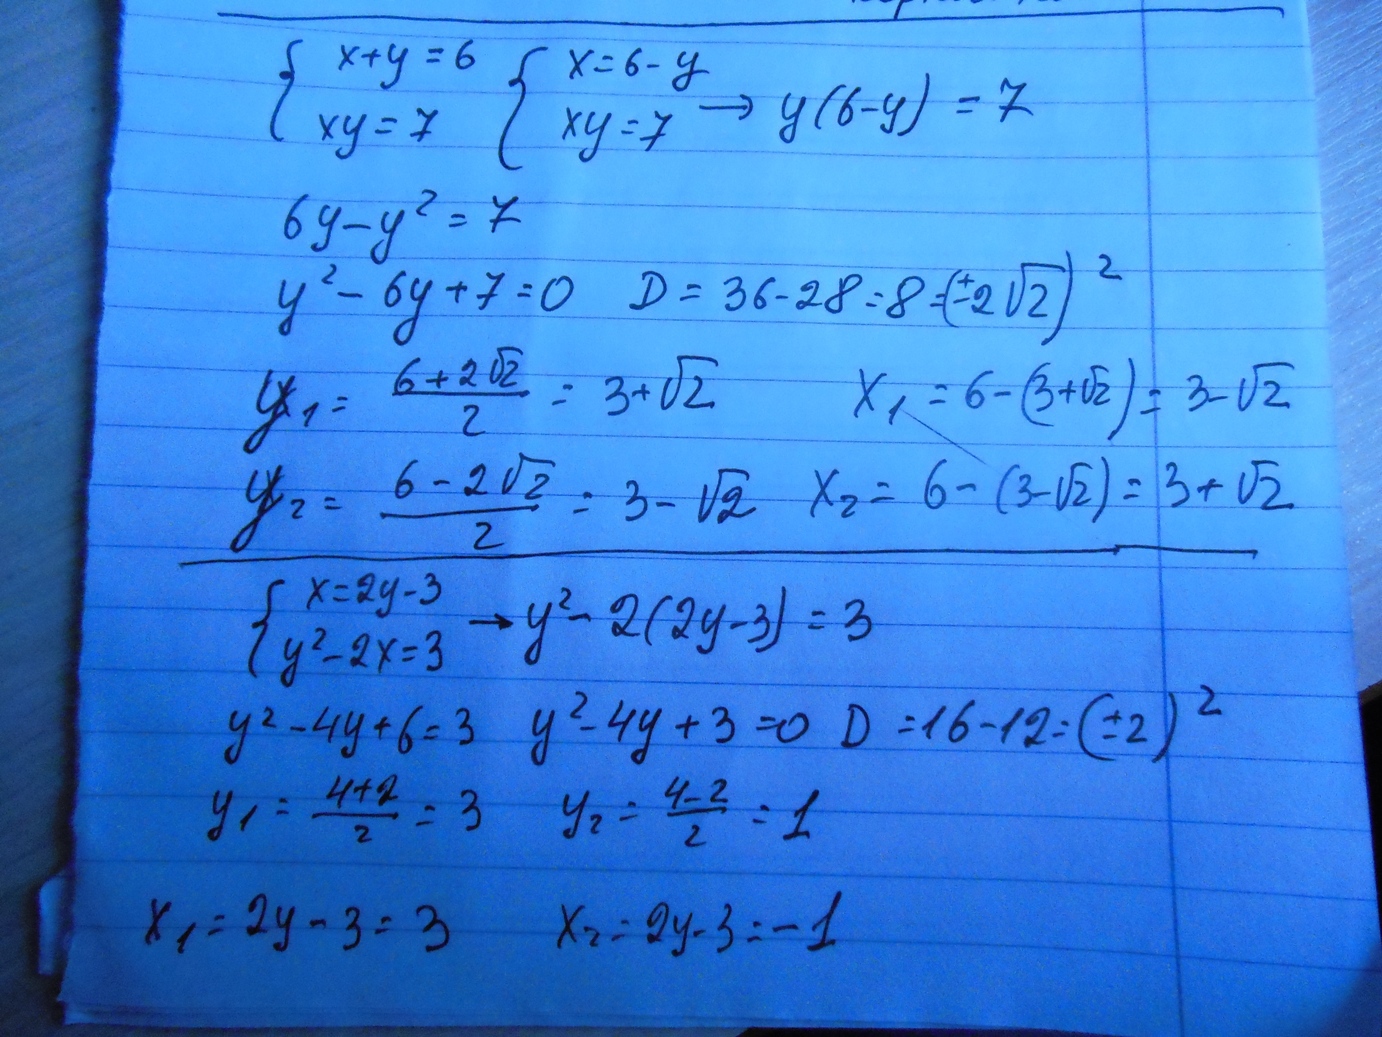 { x+y=6 xy=7 { x=6-y xy=7 → y(6-y) = 7
6y-y² = 7
y² - 6y+7=0 D = 36-28=8=(±2√2)²
y₁ = (6+2√2)/2 = 3+√2 x₁ = 6-(3+√2) = 3-√2
y₂ = (6-2√2)/2 = 3-√2 x₂ = 6-(3-√2) = 3+√2
{ x=2y-3 y²-2x=3 → y²-2(2y-3) = 3
y²-4y+6=3 y²-4y+3=0 D =16-12=(±2)²
y₁ = (4+2)/2 = 3 y₂ = (4-2)/2 = 1
x₁ = 2y-3 = 3 x₂ = 2y-3 = -1